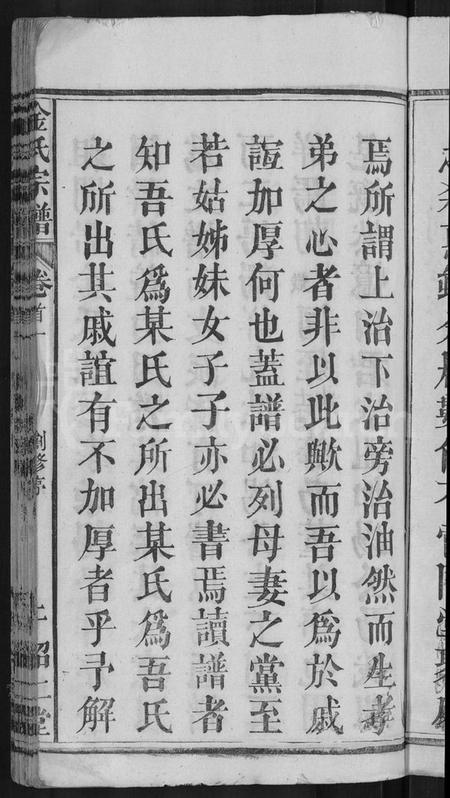 焉所謂上治下治旁治油然而生孝
弟之心者非以此歟而吾以爲於戚
誼加厚何也蓋譜必列母妻之黨至
若姑姊妹女子子亦必書焉讀譜者
知吾氏爲某氏之所出某氏爲吾氏
之所出其戚誼有不加厚者乎予解
金氏宗譜 卷首一 創修序